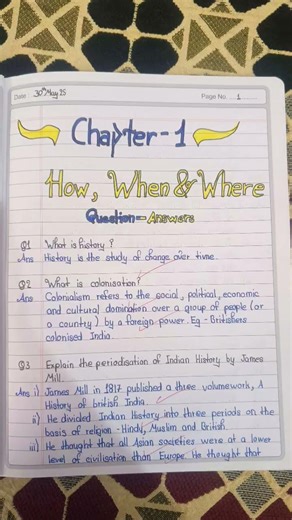 Date : 30th May 25
Page No. 1
Chapter - 1
How, When & Where
Question - Answers
Q1 What is history ?
Ans History is the study of change over time.
Q2 What is colonisation?
Ans Colonialism refers to the social, political, economic
and cultural domination over a group of people (or
a country) by a foreign power. Eg - Britishers
colonised India.
Q3 Explain the periodisation of Indian History by James
Mill.
Ans i) James Mill in 1817 published a three volumework, A
History of british India.
ii) He divided Indian History into three periods on the
basis of religion - Hindu, Muslim and British.
iii) He thought that all Asian societies were at a lower
level of civilisation than Europe. He thought that